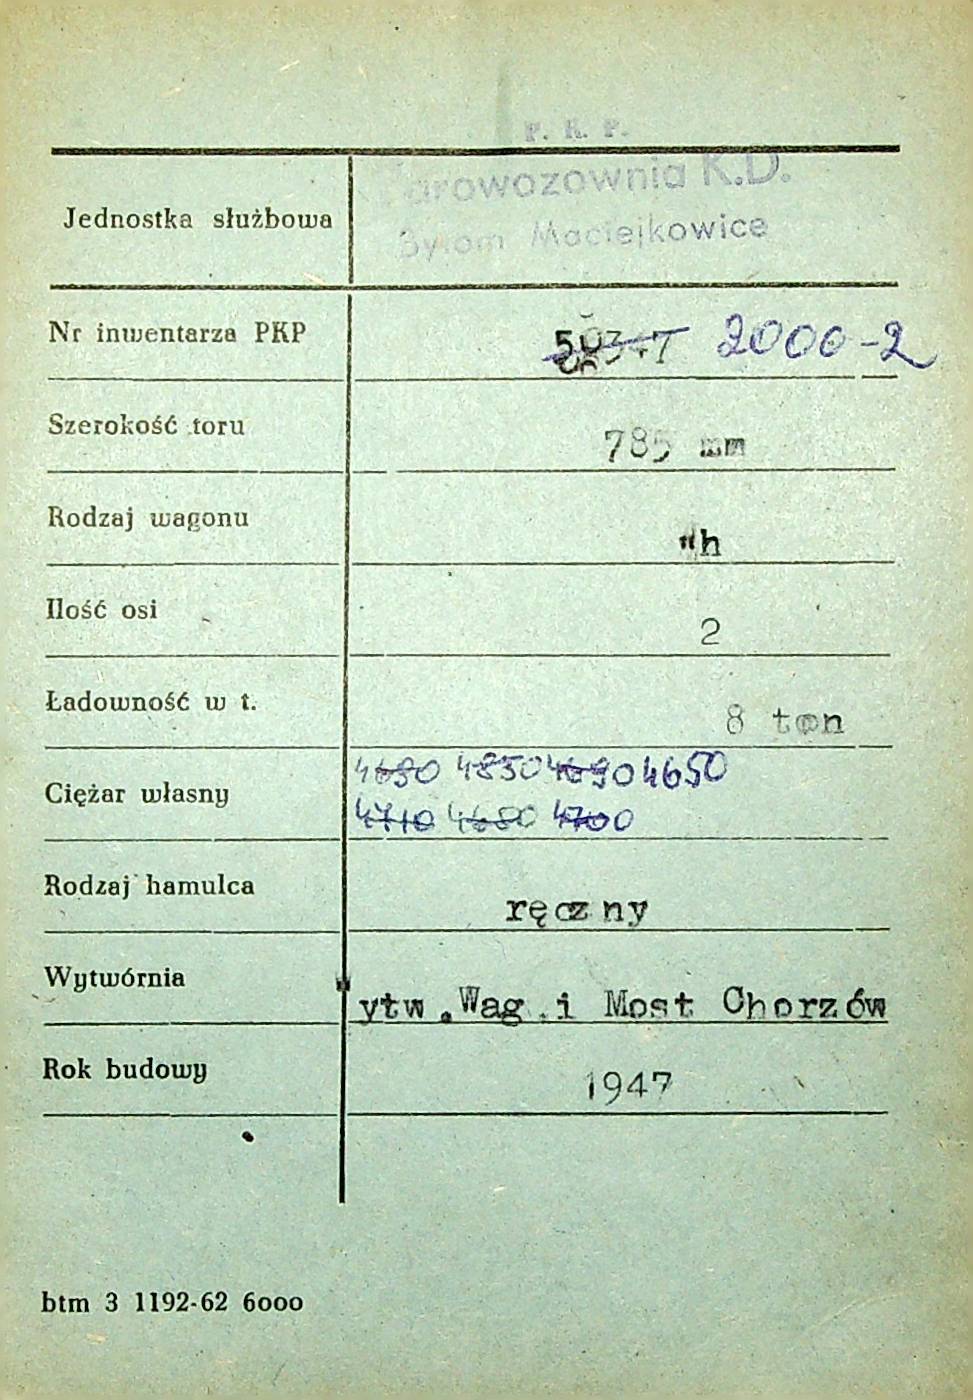 P. K. P.
Parowozownia K.D.
Jednostka służbowa
Bytom Maciejkowice
Nr inwentarza PKP 2000-2
Szerokość toru 785 mm
Rodzaj wagonu Wh
Ilość osi 2
Ładowność w t. 8 ton
4690 4850 4690 4650
Ciężar własny
4710 4680 4700
Rodzaj hamulca ręczny
Wytwórnia Wytw.Wag.i Most Chorzów
Rok budowy 1947
btm 3 1192-62 6ooo